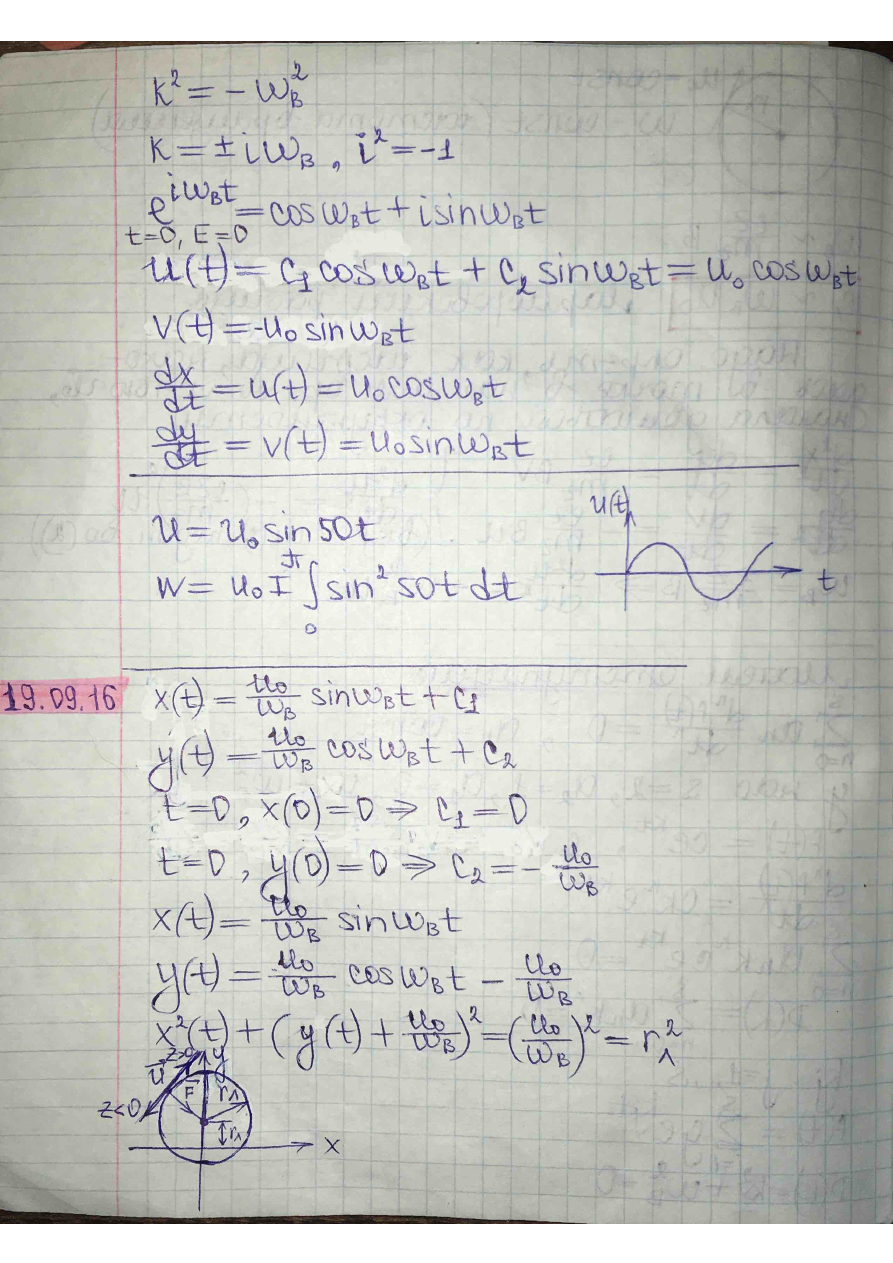 k² = - ω_B²
k = ± iω_B, i² = -1
e^{iω_Bt} = cosω_Bt + i sinω_Bt
t=0, E=0
u(t) = C₁ cosω_Bt + C₂ sinω_Bt = u₀ cosω_Bt
v(t) = -u₀ sinω_Bt
dx/dt = u(t) = u₀ cosω_Bt
dy/dt = v(t) = u₀ sinω_Bt
u = u₀ sin50t
W = u₀ I ∫₀^π sin² 50t dt
u(t)
t
19.09.16
x(t) = u₀/ω_B sinω_Bt + C₁
y(t) = u₀/ω_B cosω_Bt + C₂
t=0, x(0)=0 ⇒ C₁=0
t=0, y(0)=0 ⇒ C₂ = - u₀/ω_B
x(t) = u₀/ω_B sinω_Bt
y(t) = u₀/ω_B cosω_Bt - u₀/ω_B
x²(t) + (y(t) + u₀/ω_B)² = (u₀/ω_B)² = r_Л²
z>0 y
u
F r_Л
z<0
r_Л
x